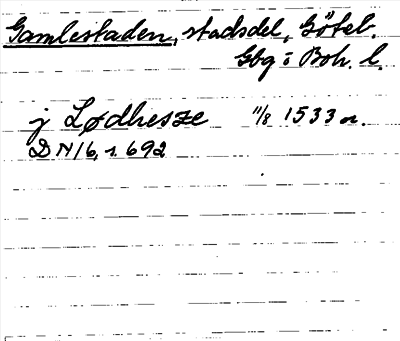 Gamlestaden, stadsdel, Göteb.
Gbg o Boh. l.
j Lødhesze 11/8 1533 n.
DN 16, s. 692